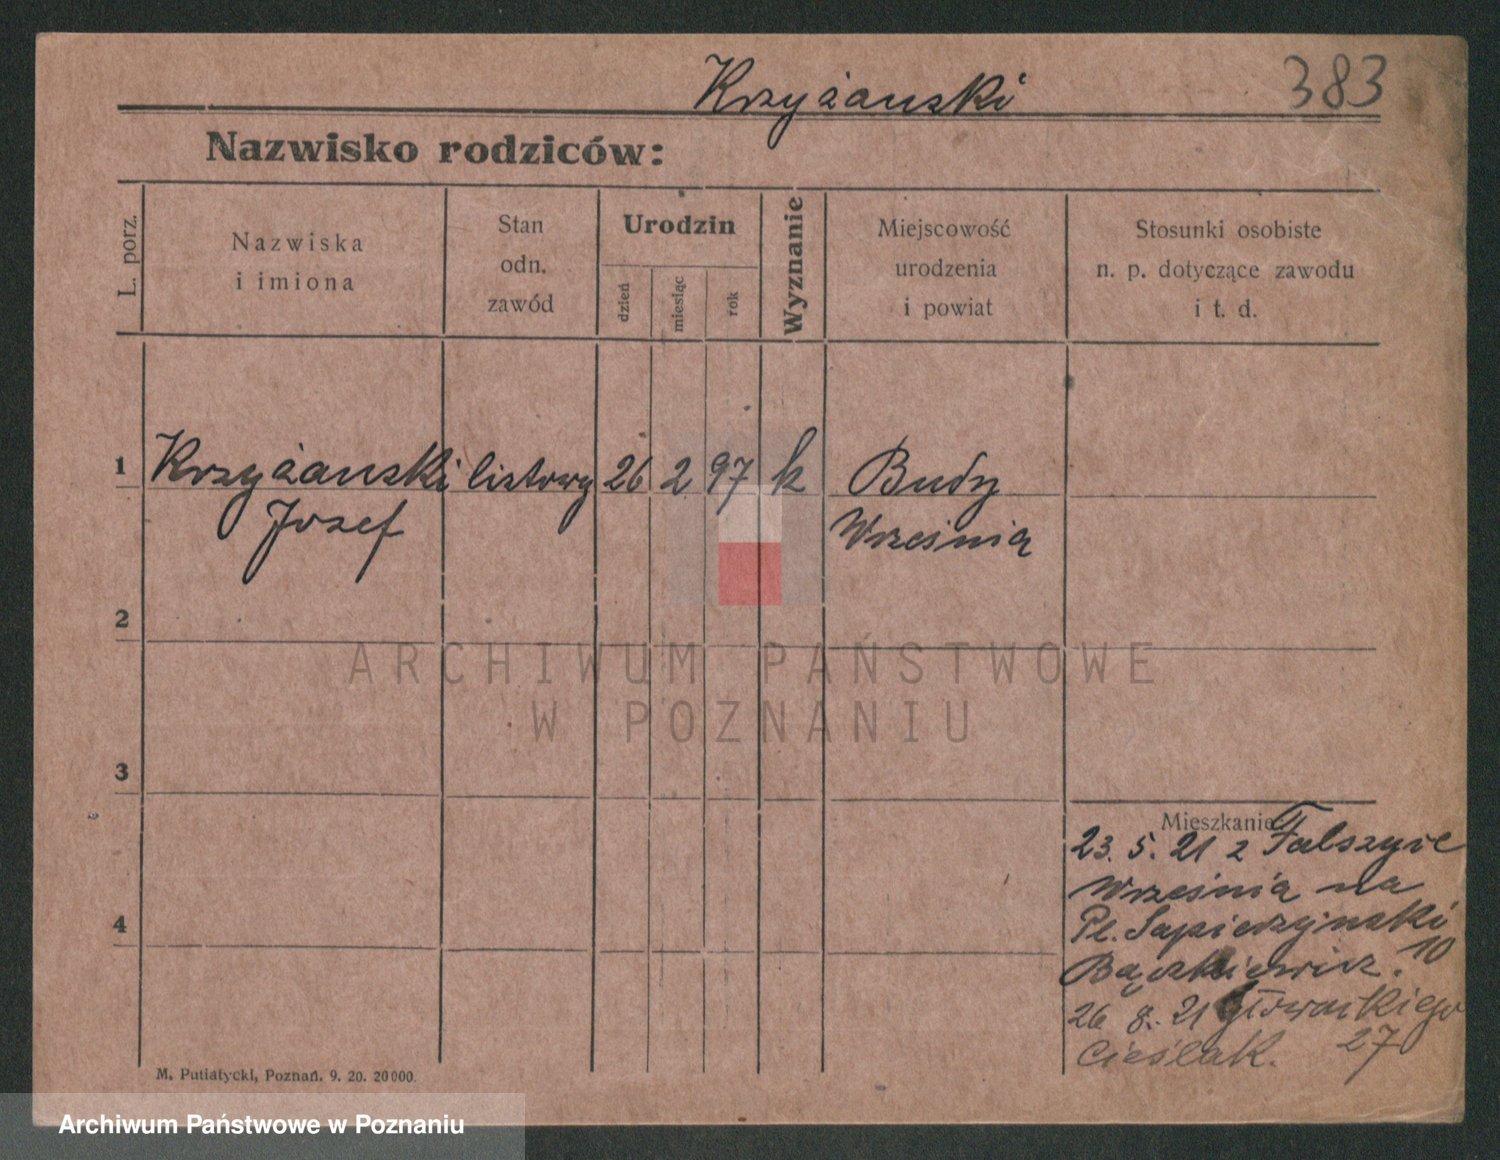 Krzyżanski
383
Nazwisko rodziców:
L. porz.
Nazwiska
i imiona
Stan
odn.
zawód
Urodzin
dzień
miesiąc
rok
Wyznanie
Miejscowość
urodzenia
i powiat
Stosunki osobiste
n. p. dotyczące zawodu
i t. d.
1
Krzyżanski listowy 26 2 97 k Budy
Jozef
Wrześnią
2
ARCHIWUM PAŃSTWOWE
W POZNANIU
3
Mieszkanie
23. 5. 21 z
Wrześnią na
Pl. Sapierzynski
10
4
26 8. 21
Cieślak. 27
M. Putiatycki, Poznań. 9. 20. 20000.
Archiwum Państwowe w Poznaniu